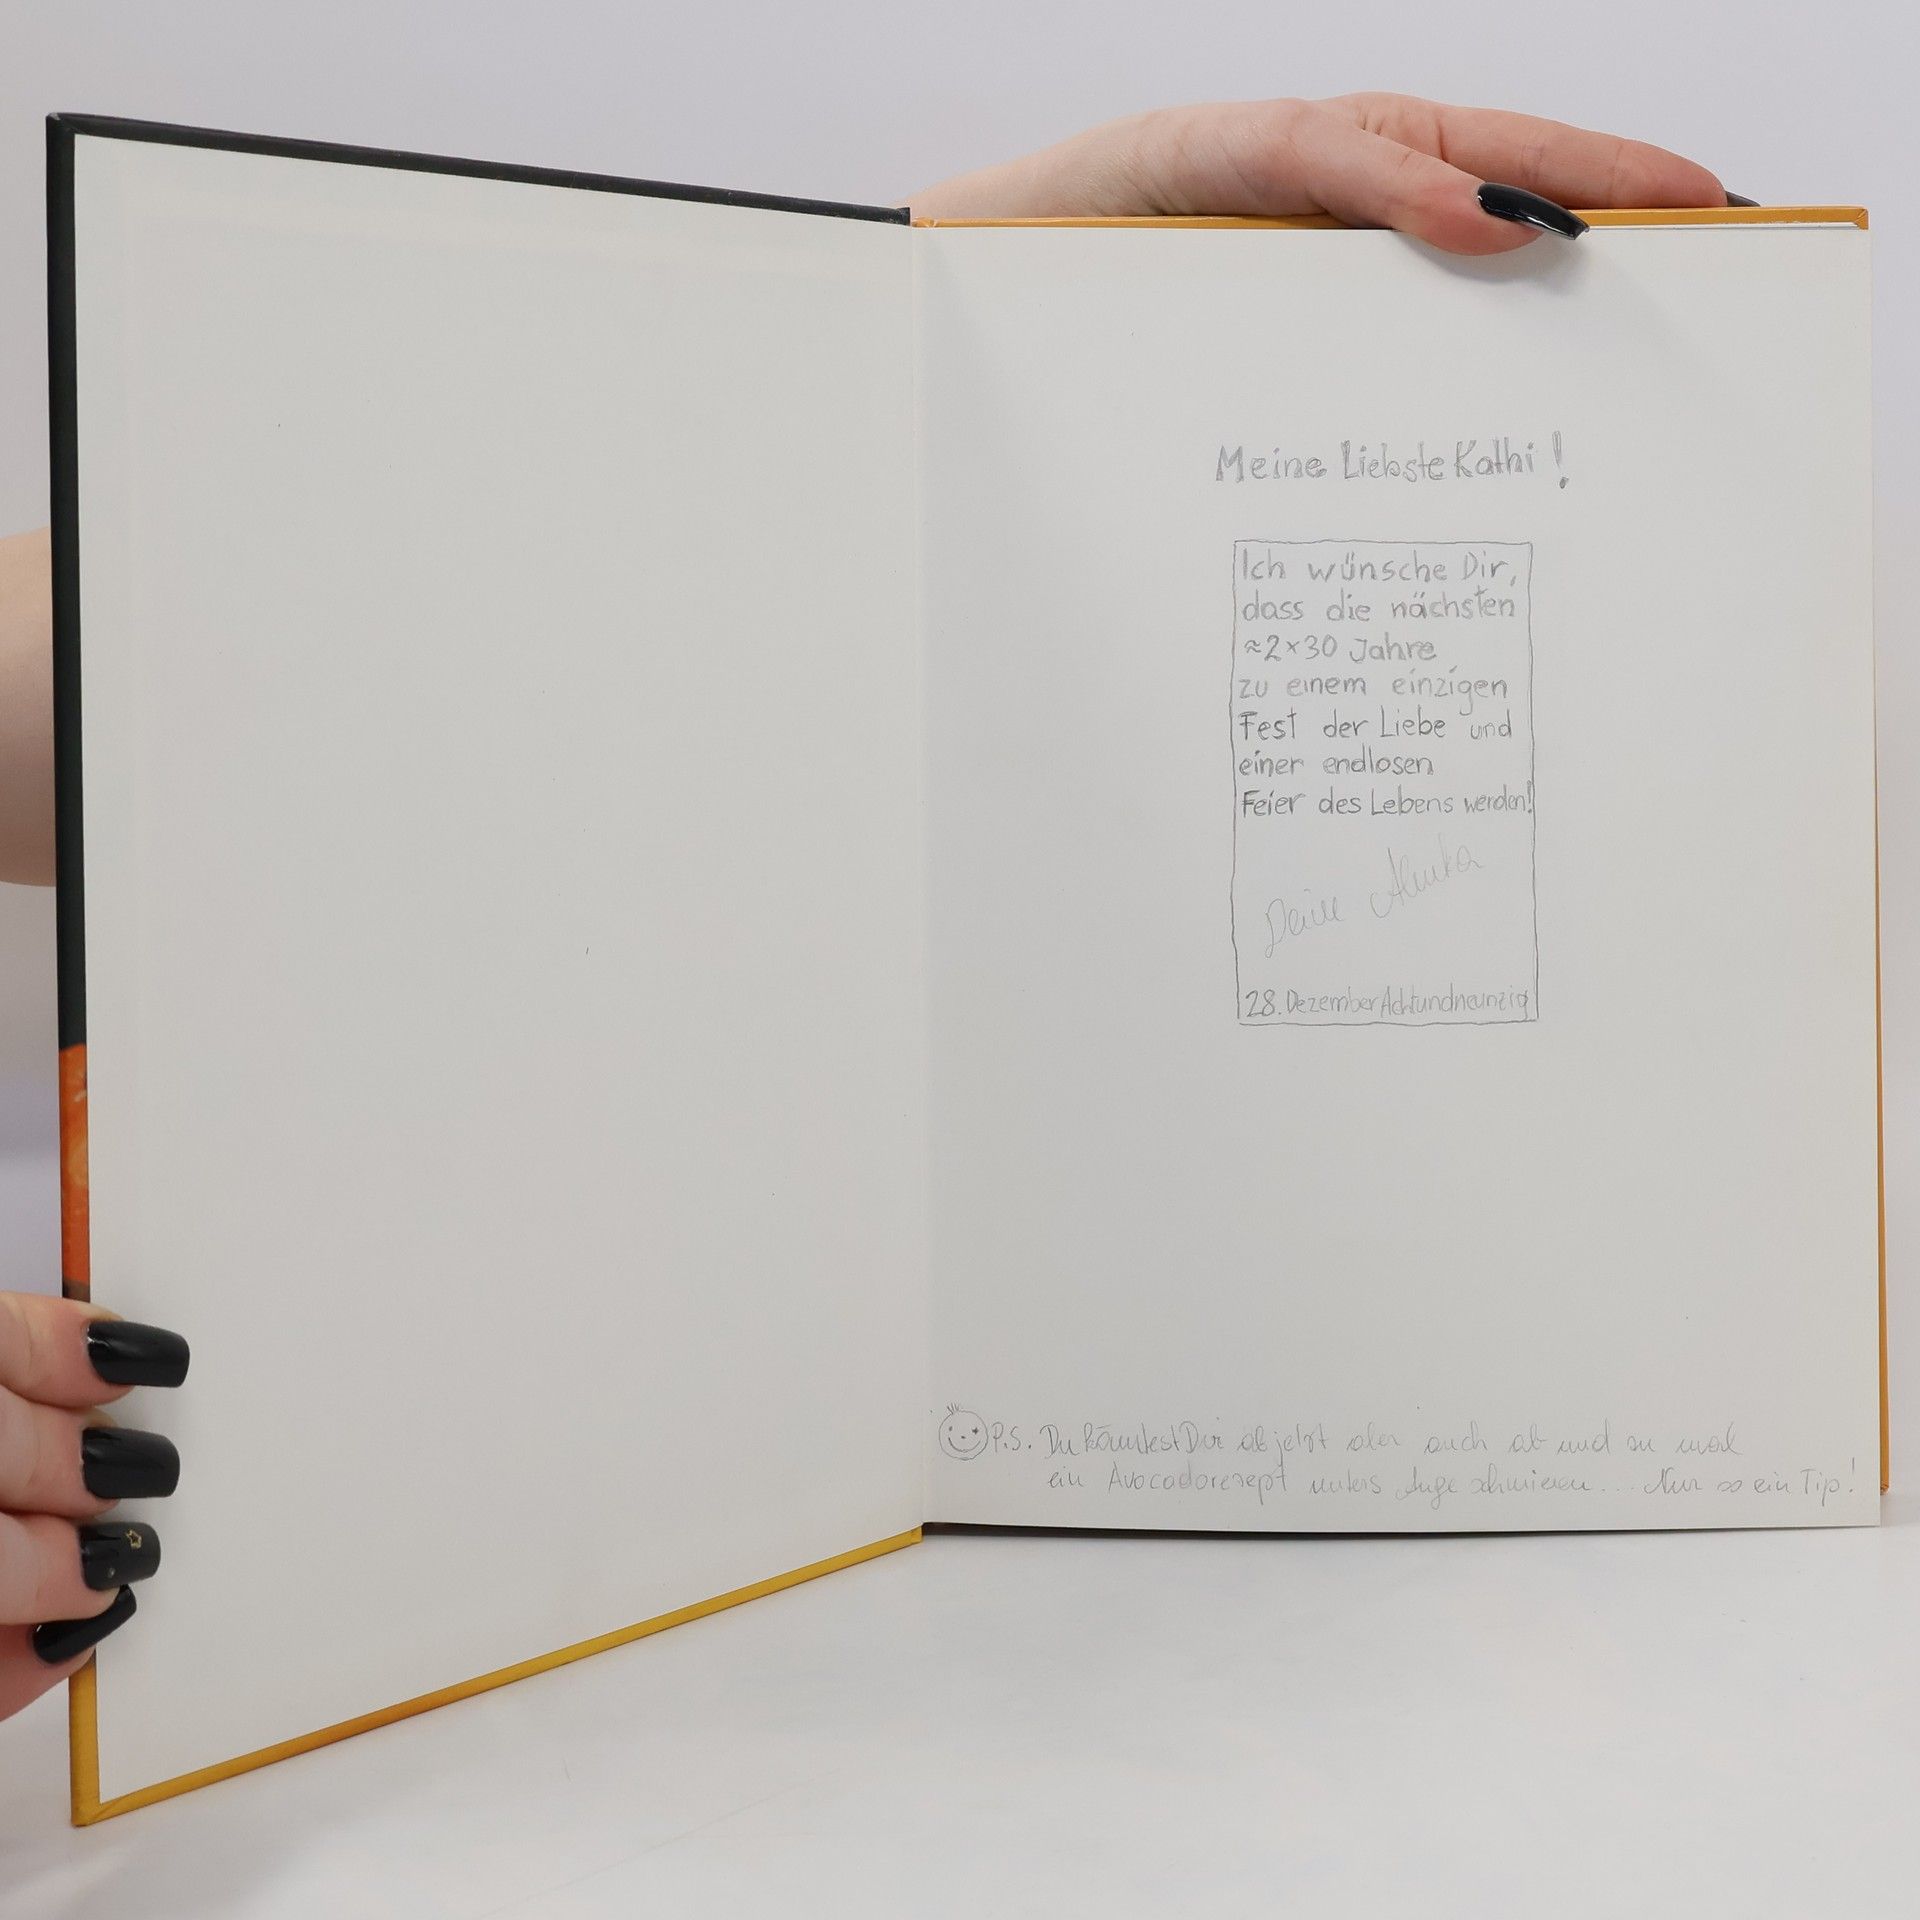 Meine Liebste Kathi!
Ich wünsche Dir,
dass die nächsten
≈2×30 Jahre
zu einem einzigen
Fest der Liebe und
einer endlosen
Feier des Lebens werden!
Deine
28. Dezember Achtundneunzig
P.S. Du könntest Dir ab jetzt aber auch ab und zu mal
ein Avocadorezept unters Auge schmieren... Nur so ein Tip!